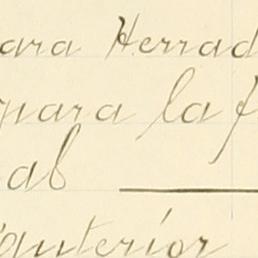 ara Herrad
para la f
al
anterior